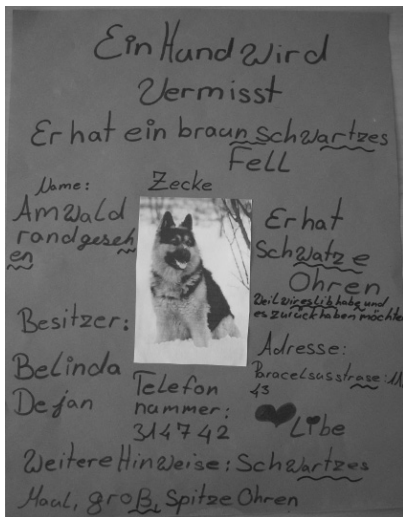 Ein Hund wird
Vermisst
Er hat ein braun schwartzes
Fell
Name: Zecke
Am Wald
rand geseh
en
Er hat
Schwatze
Ohren
Weil wir es lib habe und
es zurück haben möchte
Besitzer:
Belinda
Dejan
Adresse:
Paracelsusstrase: 11
43
Telefon
nummer:
314742
Libe
Weitere Hinweise: Schwartzes
Maul, groß, Spitze Ohren